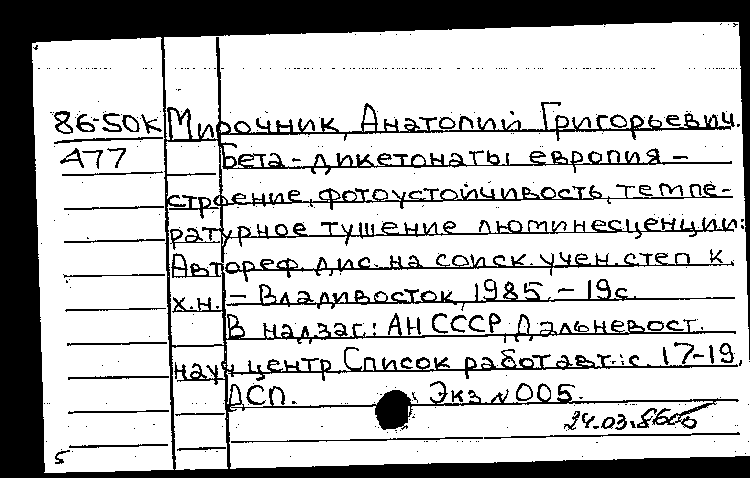 86-50К Мирочник, Анатолий Григорьевич.
477 Бета-дикетонаты европия -
строение, фотоустойчивость, темпе-
ратурное тушение люминесценции:
Автореф. дис. на соиск. учен. степ к.
х.н. - Владивосток, 1985. - 19с.
В надзаг.: АН СССР, Дальневост.
науч центр. Список работ авт.: с. 17-19.
ДСП. Экз. №005.
24.03.86
5